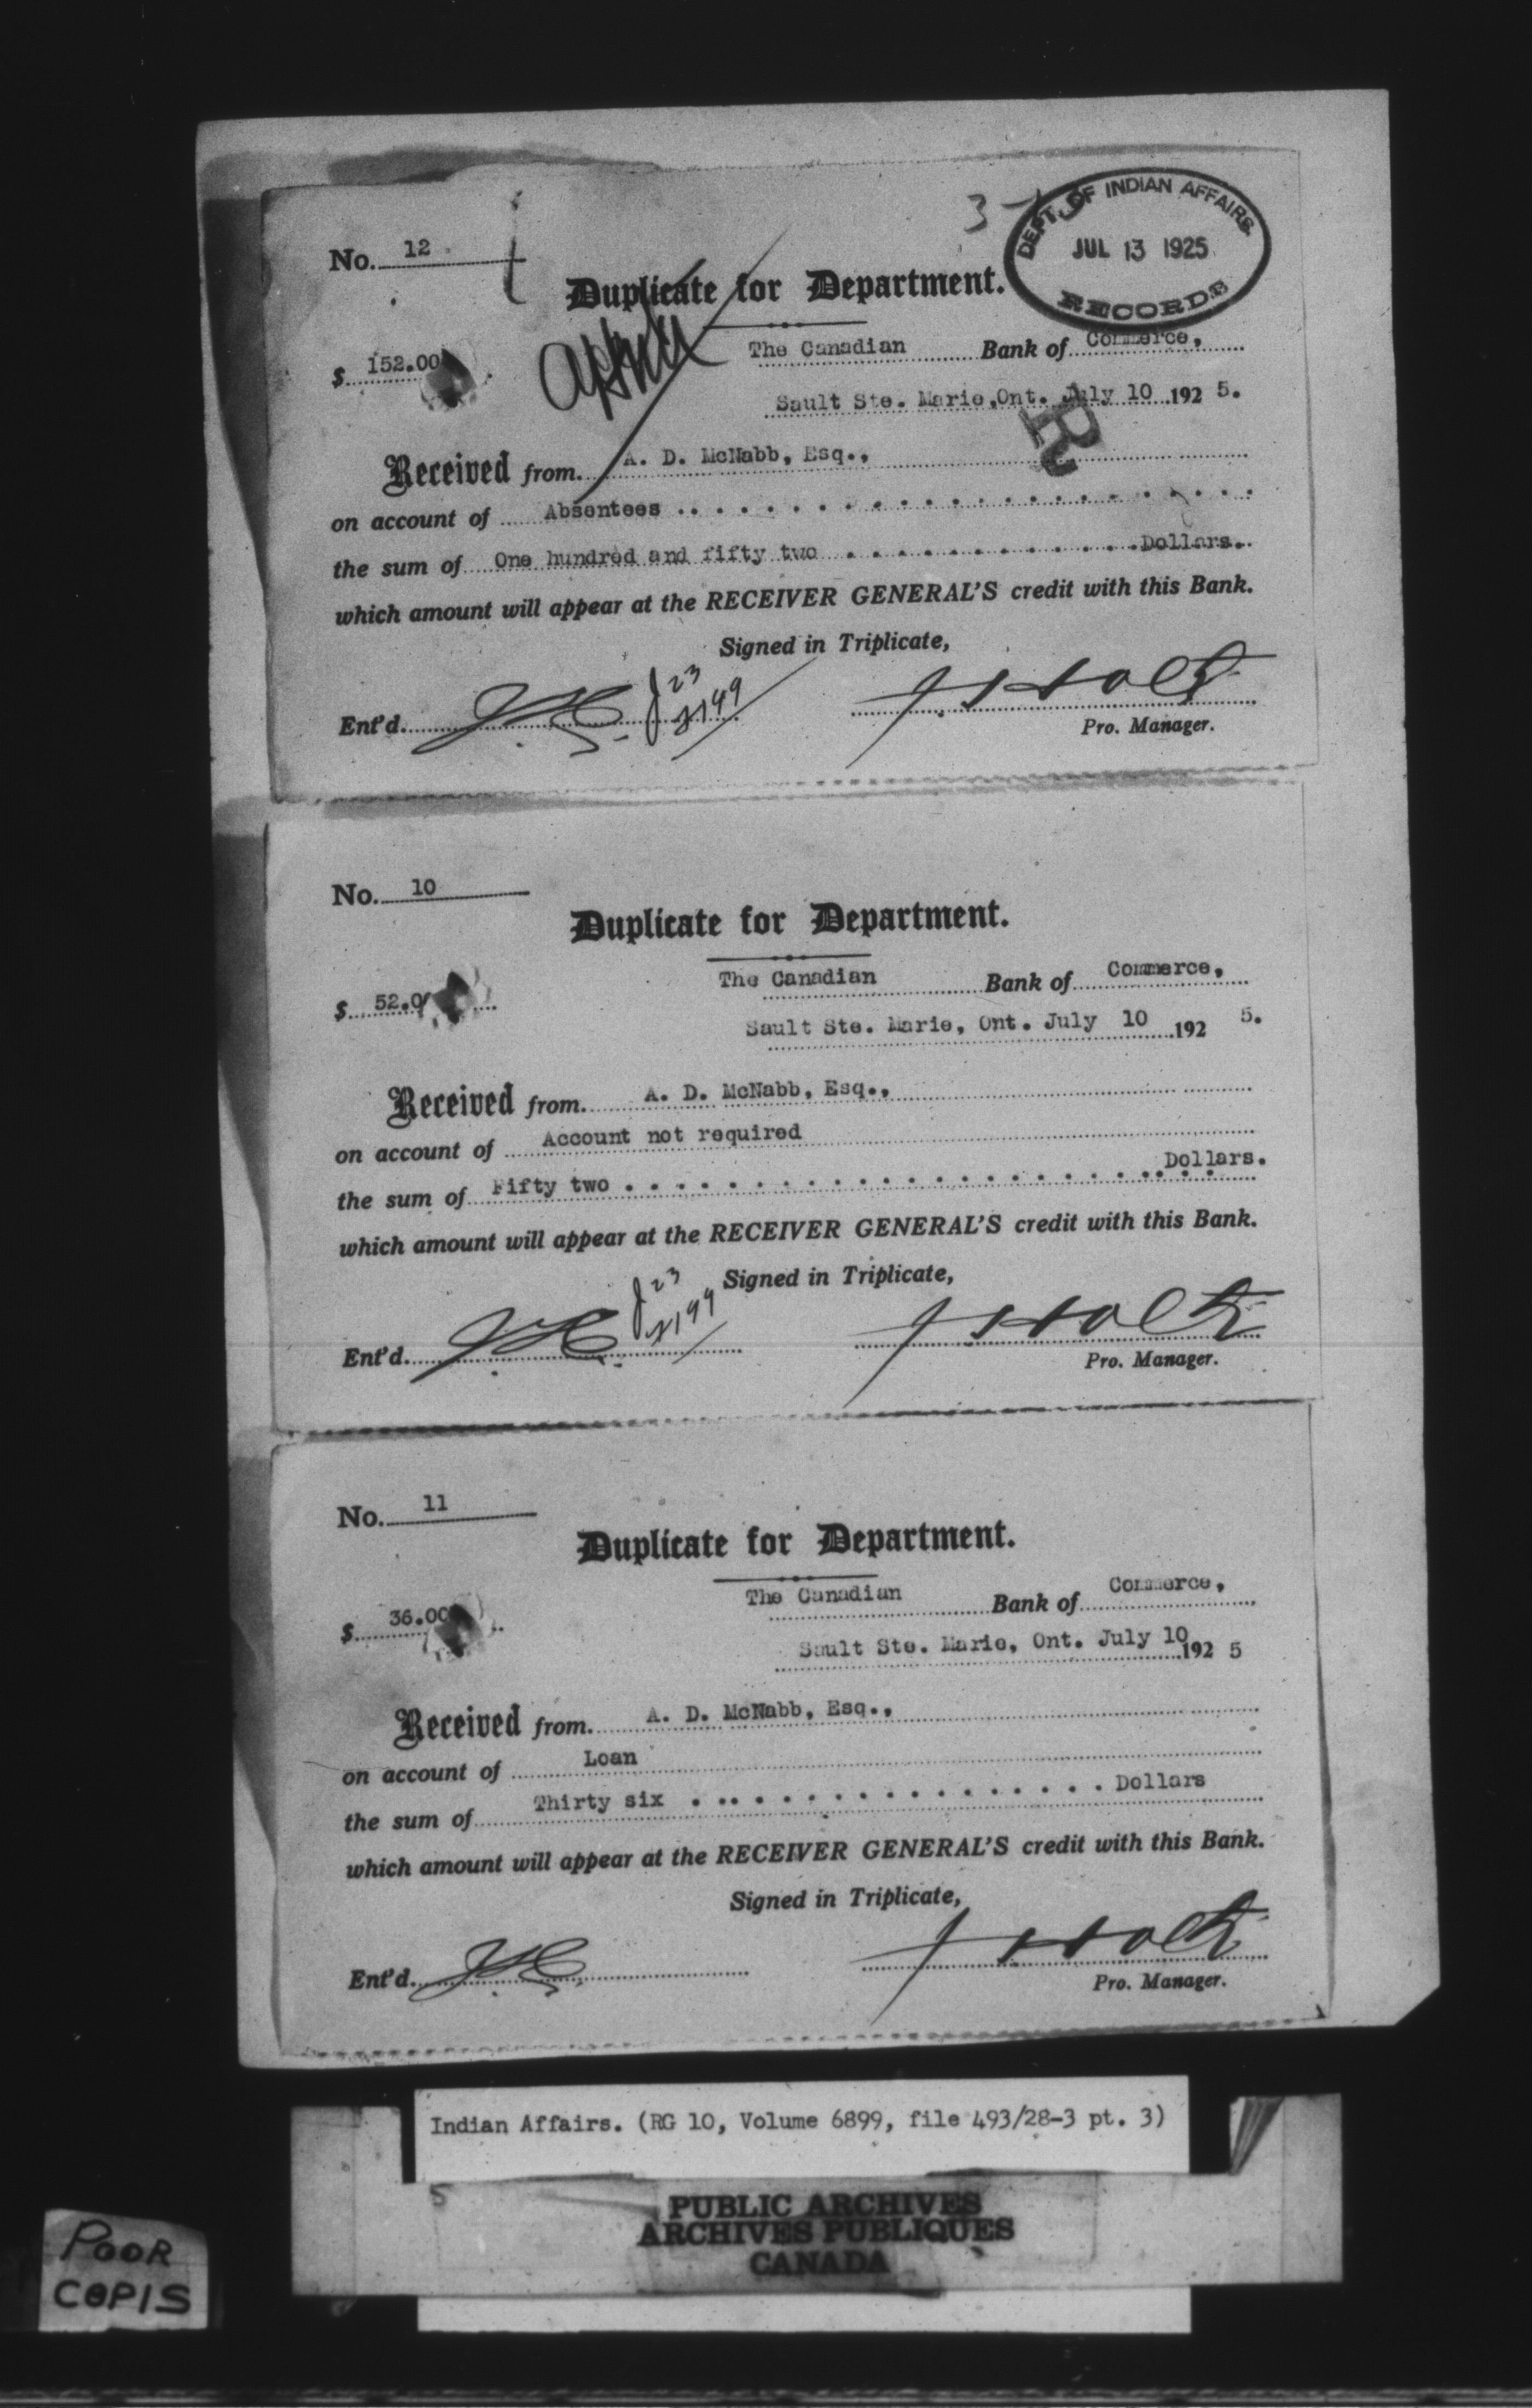 3
DEPT. OF INDIAN AFFAIRS.
JUL 13 1925
RECORDS
No. 12
Duplicate for Department.
$ 152.00
The Canadian Bank of Commerce,
Sault Ste. Marie, Ont. July 10 192 5.
R
Received from A. D. McNabb, Esq.,
on account of Absentees
the sum of One hundred and fifty two Dollars.
which amount will appear at the RECEIVER GENERAL'S credit with this Bank.
Signed in Triplicate,
23
2149
Ent'd. J Holt
Pro. Manager.
No. 10
Duplicate for Department.
$ 52.0
The Canadian Bank of Commerce,
Sault Ste. Marie, Ont. July 10 192 5.
Received from A. D. McNabb, Esq.,
on account of Account not required
the sum of Fifty two Dollars.
which amount will appear at the RECEIVER GENERAL'S credit with this Bank.
23 Signed in Triplicate,
Ent'd. J Holt
Pro. Manager.
No. 11
Duplicate for Department.
$ 36.00
The Canadian Bank of Commerce,
Sault Ste. Marie, Ont. July 10 192 5
Received from A. D. McNabb, Esq.,
on account of Loan
the sum of Thirty six Dollars
which amount will appear at the RECEIVER GENERAL'S credit with this Bank.
Signed in Triplicate,
Ent'd. J Holt
Pro. Manager.
Indian Affairs. (RG 10, Volume 6899, file 493/28-3 pt. 3)
5
PUBLIC ARCHIVES
ARCHIVES PUBLIQUES
CANADA
POOR
COPIS